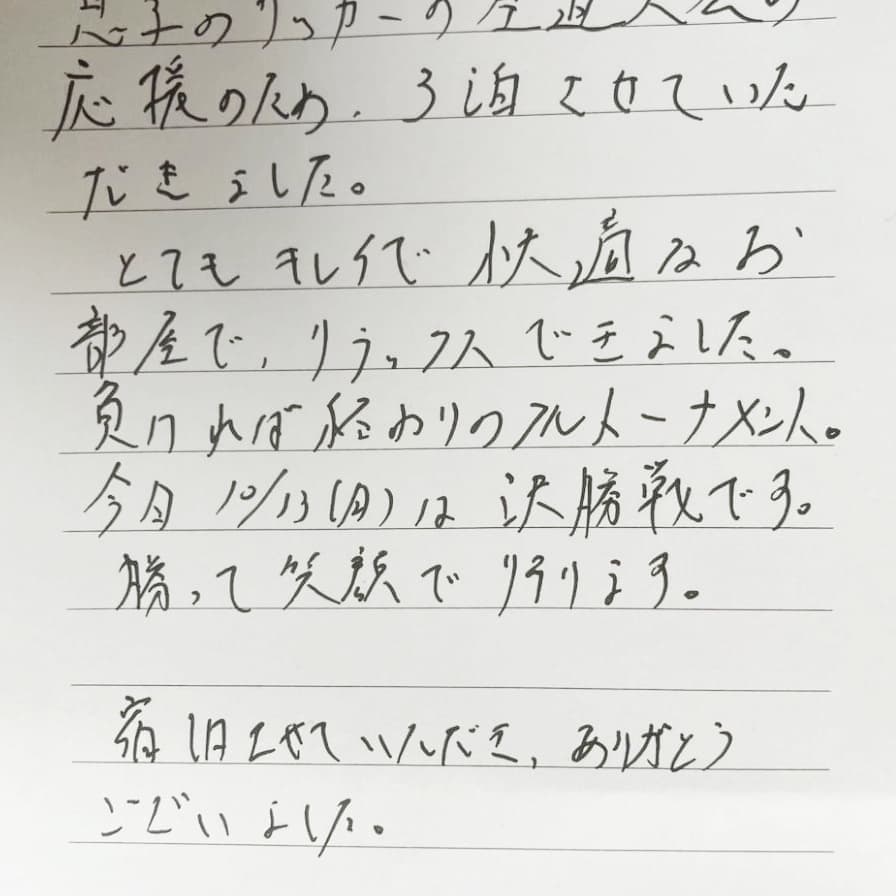 息子のサッカーの全道大会の
応援のため、3泊させていた
だきました。
とてもキレイで快適なお
部屋で、リラックスできました。
負ければ終わりのフルトーナメント。
今日10/13(月)は決勝戦です。
勝って笑顔で帰ります。
宿泊させていただき、ありがとう
ございました。